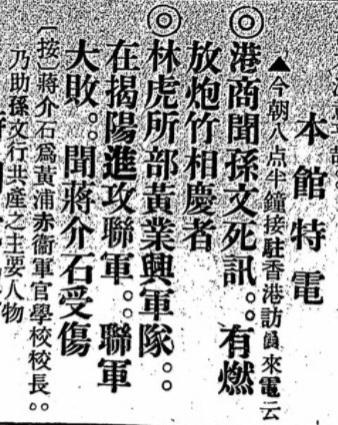 本館特電
▲今朝八点半鐘接駐香港訪員來電云
◎港商聞孫文死訊。。有燃
放炮竹相慶者
◎林虎所部黃業興軍隊。。
在揭陽進攻聯軍。。聯軍
大敗。。聞蔣介石受傷
〔按〕蔣介石爲黃浦赤衞軍官學校校長。。
乃助孫文行共產之主要人物